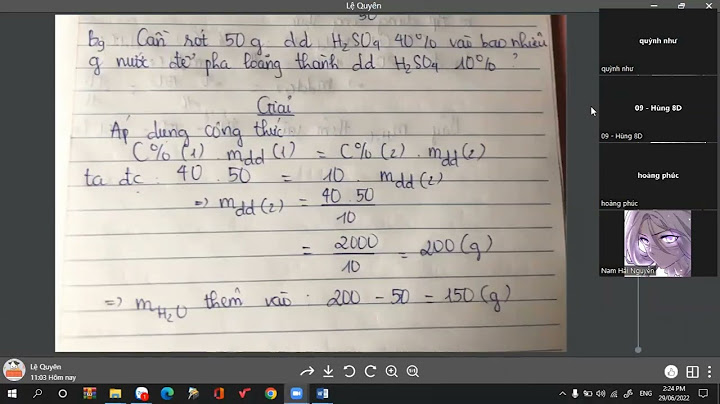 Lệ Quyên
50
Bg Cần rót 50 g dd H₂SO₄ 40% vào bao nhiêu
g nước để pha loãng thành dd H₂SO₄ 10% ?
Giải
Áp dụng công thức
C% (1) . mdd (1) = C% (2) . mdd (2)
ta đc : 40 . 50 = 10 . mdd (2)
=> mdd (2) = 40 . 50
10
= 2000 = 200 (g)
10
=> mH₂O thêm vào : 200 - 50 = 150 (g)
quỳnh như
quỳnh như
09 - Hùng 8D
09 - Hùng 8D
hoàng phúc
hoàng phúc
Nam Hải Nguyễn
Lệ Quyên
11:03 Hôm nay
ENG
2:24 PM
29/06/2022